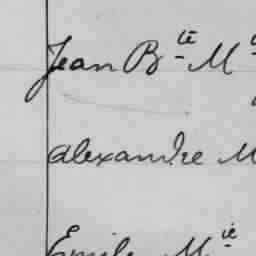 Jean Bte M
Alexandre M
Emile Mie